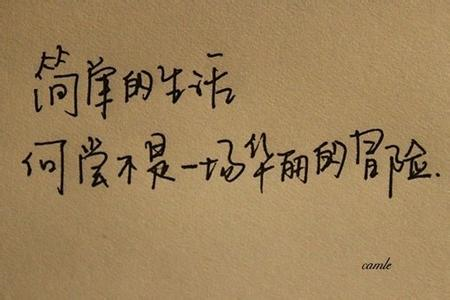 简单的生活
何尝不是一场华丽的冒险.
camle